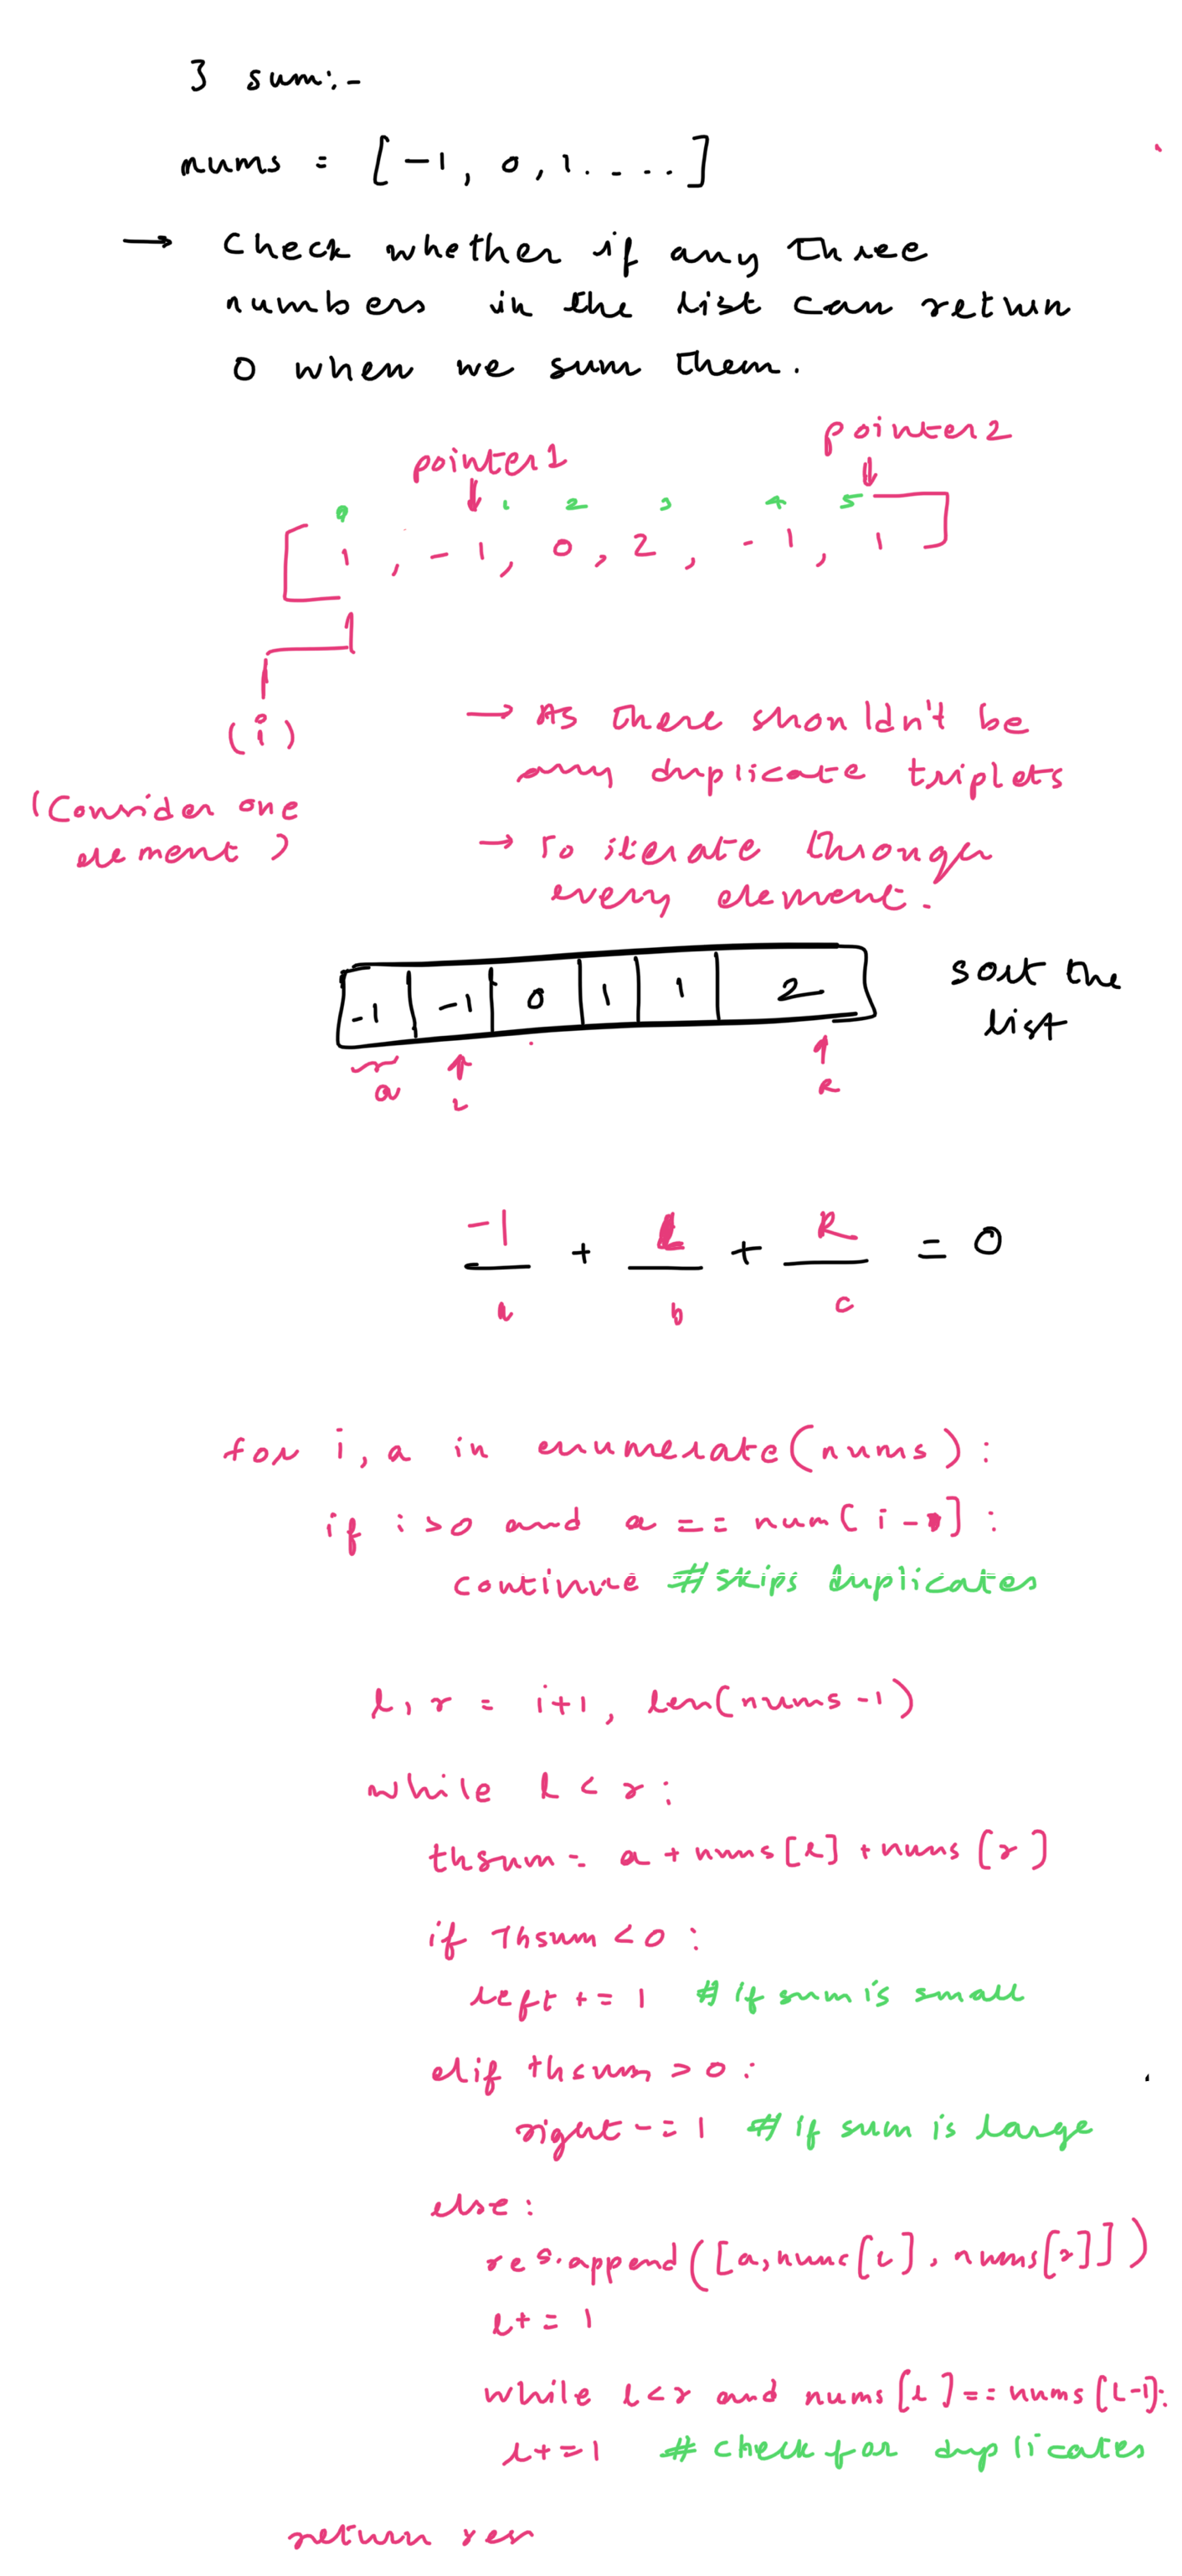 3 sum:-
nums = [-1, 0, 1. - - -]
→ Check whether if any three
numbers in the list can return
0 when we sum them.
pointer1 pointer2
0 1 2 3 4 5
[1, -1, 0, 2, -1, 1]
(i)
(Consider one
element)
→ As there shouldn't be
any duplicate triplets
→ To iterate through
every element.
-1 -1 0 1 1 2
sort the
list
a L R
-1 + L + R = 0
a b c
for i, a in enumerate(nums):
if i>0 and a == num[i-1]:
continue #skips duplicates
l, r = i+1, len(nums-1)
while l < r:
thsum = a + nums[l] + nums[r]
if Thsum < 0 :
left += 1 # if sum is small
elif thsum > 0 :
right -= 1 # if sum is large
else :
res.append([a, nums[l], nums[r]])
l += 1
while l<r and nums[l] == nums[L-1]:
l+=1 # check for duplicates
return res